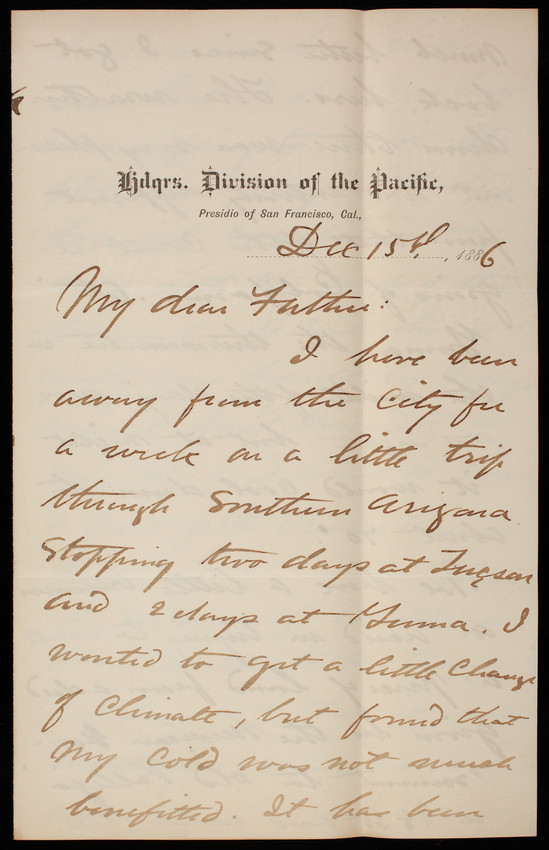 Hdqrs. Division of the Pacific,
Presidio of San Francisco, Cal.,
Dec 15th, 1886
My dear Father:
I have been
away from the City for
a week on a little trip
through Southern Arizona
Stopping two days at Tucson
and 2 days at Yuma. I
wanted to get a little change
of climate, but found that
my cold was not much
benefitted. It has been